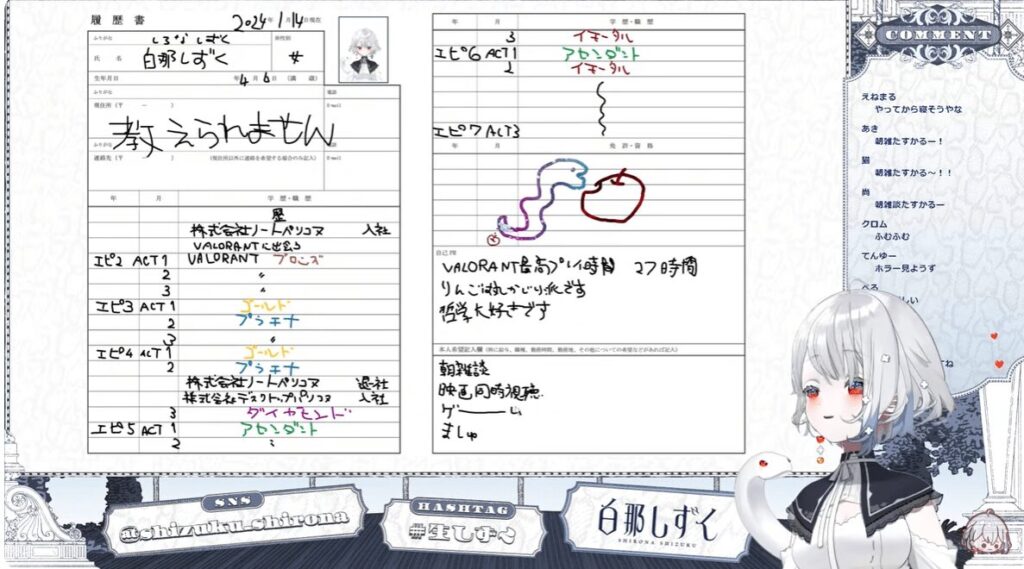 履歴書
2024年1月14日現在
ふりがな しろな しずく
氏名 白那しずく
生年月日 年4月6日(満 歳)
電話
ふりがな
E-mail
現住所(〒 - )
教えられません
ふりがな
電話
連絡先(〒 ) (現住所以外に連絡を希望する場合のみ記入)
E-mail
年 月 学歴・職歴
歴
株式会社ノートペリコア 入社
VALORANTに出会う
エピ2 ACT1 VALORANT ブロンズ
2 〃
3 〃
エピ3 ACT1 ゴールド
2 プラチナ
3 〃
エピ4 ACT1 ゴールド
2 プラチナ
株式会社ノートペリコア 退社
株式会社デスクトップパソコン 入社
3 ダイヤモンド
エピ5 ACT1 アセンダント
2
年 月 学歴・職歴
3 イモータル
エピ6 ACT1 アセンダント
2 イモータル
エピ7 ACT3
年 月 免許・資格
自己PR
VALORANT最高プレイ時間 27時間
りんごは丸かじり派です
哲学大好きです
本人希望記入欄(特に給与、職種、勤務時間、勤務地、その他についての希望などがあれば記入)
朝雑談
映画同時視聴
ゲーーーむ
ましゅ
COMMENT
えねまる
やってから寝そうやな
あき
朝雑たすかるー!
猫
朝雑たすかる〜!!
尚
朝雑談たすかるー
クロム
ふむふむ
てんゆー
ホラー見ようず
べる
しい
SNS
@shizuku_shirona
HASHTAG
#生しずく
白那しずく
SHIRONA SHIZUKU